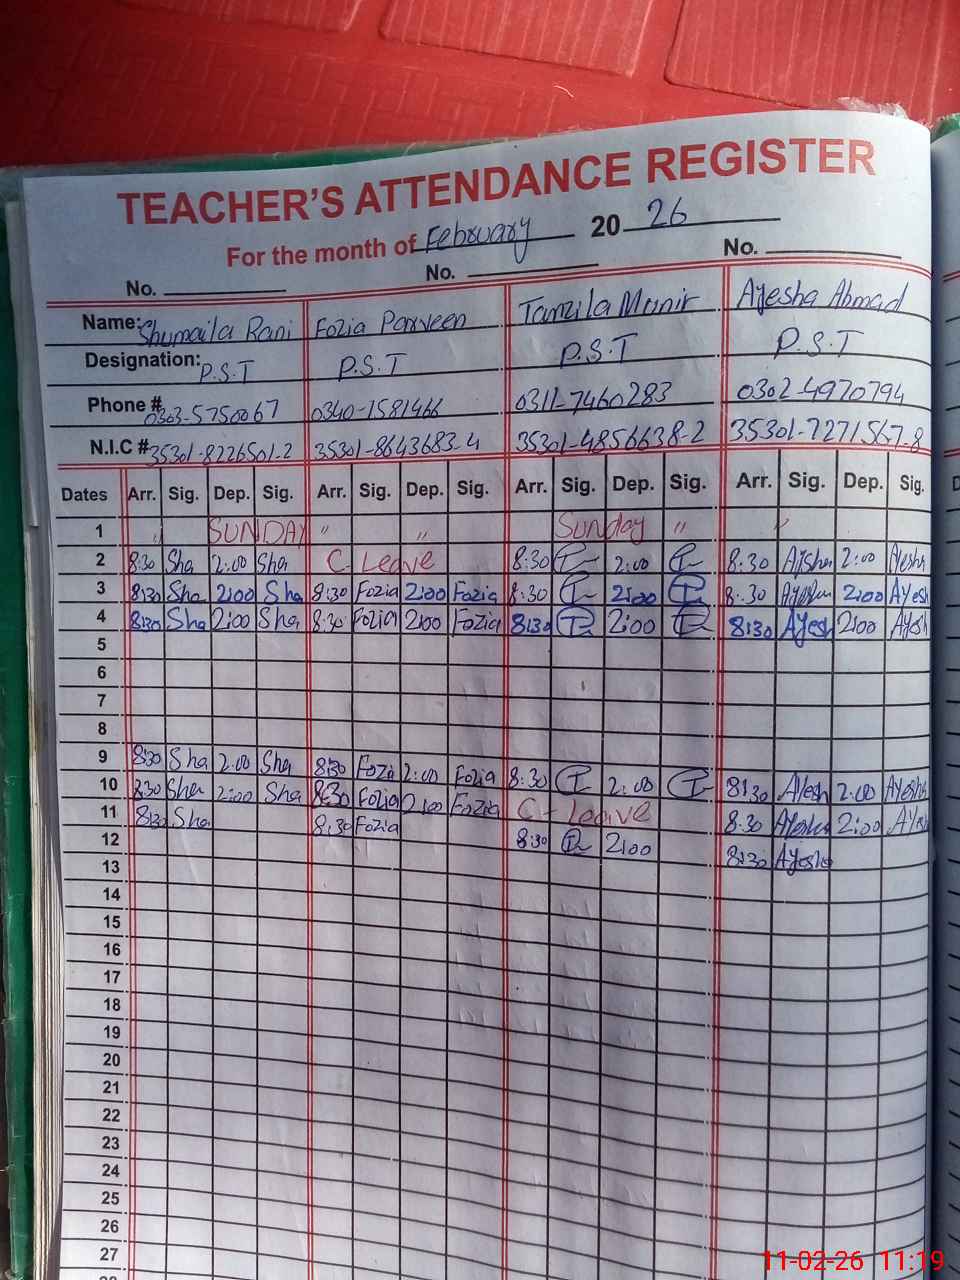 TEACHER'S ATTENDANCE REGISTER
For the month of February 2026
No. No. No.
Name: Shumaila Rani Fozia Parveen Tanzila Munir Ayesha Ahmad
Designation: P.S.T P.S.T P.S.T P.S.T
Phone # 0303-5750067 0340-1581466 0311-7460283 0302-4970794
N.I.C # 35301-8226501-2 35301-8643683-4 35301-4856638-2 35301-7271567-8
Dates Arr. Sig. Dep. Sig. Arr. Sig. Dep. Sig. Arr. Sig. Dep. Sig. Arr. Sig. Dep. Sig.
1 " SUNDAY " " Sunday " "
2 8:30 Sha 2:00 Sha C-Leave 8:30 2:00 8:30 Ayesha 2:00 Ayesha
3 8:30 Sha 2:00 Sha 8:30 Fozia 2:00 Fozia 8:30 2:00 8:30 Ayesha 2:00 Ayesh
4 8:30 Sha 2:00 Sha 8:30 Fozia 2:00 Fozia 8:30 2:00 8:30 Ayesh 2:00 Ayesh
5
6
7
8
9 8:30 Sha 2:00 Sha 8:30 Fozia 2:00 Fozia 8:30 2:00 8:30 Ayesh 2:00 Ayesha
10 8:30 Sha 2:00 Sha 8:30 Fozia 2:00 Fozia C-Leave 8:30 Ayesha 2:00 Ayesh
11 8:30 Sha 8:30 Fozia 8:30 2:00 8:30 Ayesha
12
13
14
15
16
17
18
19
20
21
22
23
24
25
26
27
11-02-26 11:19